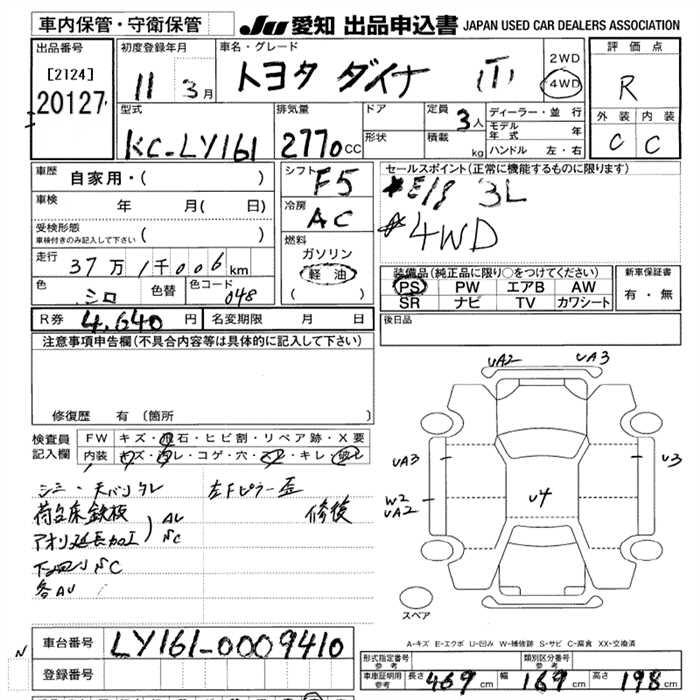 車内保管・守衛保管 JU 愛知 出品申込書 JAPAN USED CAR DEALERS ASSOCIATION
出品番号
[2124]
20127
初度登録年月
11 3月
車名・グレード
トヨタ ダイナ
2WD
4WD
評価点
R
外装 内装
C C
型式
KC-LY161
排気量
2770cc
ドア
形状
定員 3人
積載 kg
ディーラー・並行
モデル年式 年
ハンドル 左・右
車歴 自家用・( )
車検 年 月( 日)
受検形態
車検付きのみ記入して下さい ( )
走行 37万1千006km
色 シロ 色替 色コード 048
シフト F5
冷房 AC
燃料
ガソリン
軽油
( )
セールスポイント(正常に機能するものに限ります)
3L
4WD
装備品(純正品に限り○をつけてください)
PS PW エアB AW
SR ナビ TV カワシート
新車保証書
有・無
R券 4,640円 名変期限 月 日
後日品
注意事項申告欄(不具合内容等は具体的に記入して下さい)
修復歴 有(箇所 )
検査員記入欄
FW キズ・飛石・ヒビ割・リペア跡・X要
内装 キズ・汚レ・コゲ・穴・スレ・キレ・破レ
荷台床鉄板
アオリ延長加工
AL
NC
左Fピラー歪
修復
各AU
UA2 UA3
UA3 U3
W2
UA2
U4
スペア
A-キズ E-エクボ U-凹み W-補修跡 S-サビ C-腐食 XX-交換済
N
車台番号 LY161-0009410
登録番号
形式指定番号 参考
類別区分番号 参考
車庫証明用 参考 長さ 469cm 幅 169cm 高さ 198cm